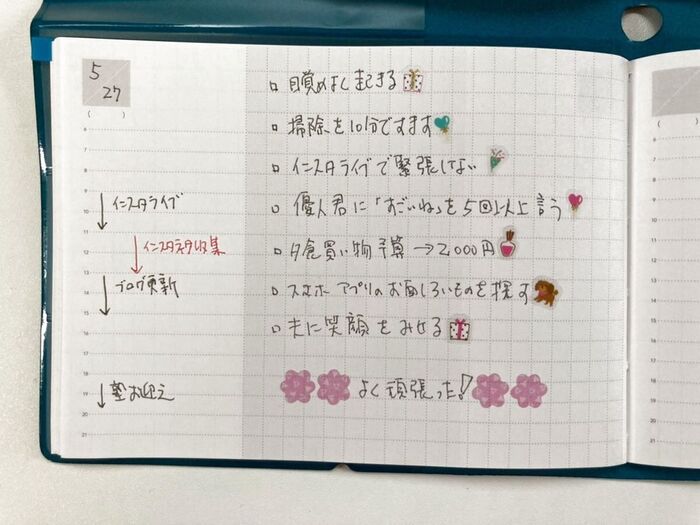 5
27
( )
6
7
8
9
10
11
12
13
14
15
16
17
18
19
20
21
インスタライブ
インスタネタ収集
ブログ更新
塾お迎え
□ 目覚めよく起きる
□ 掃除を10分ですます
□ インスタライブで緊張しない
□ 優人君に「すごいね」を5回以上言う
□ 夕食買い物予算→2000円
□ スマホアプリのお面しろいものを探す
□ 夫に笑顔をみせる
よく頑張った!
( )